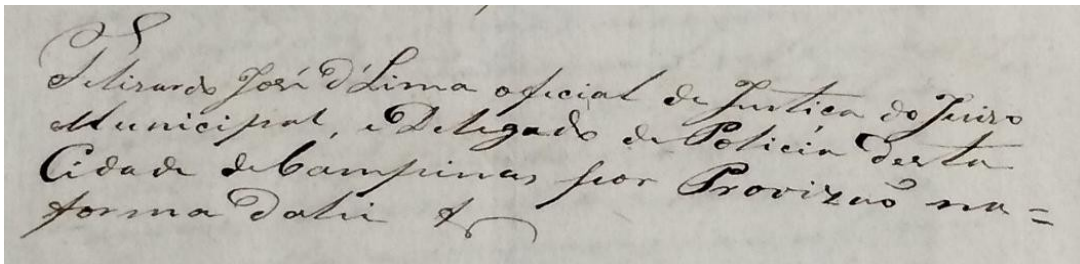 Felisardo José d'Lima oficial de Justiça do Juizo
Municipal, e Delegado de Policia desta
Cidade de Campinas por Provizaõ na=
forma dalei &